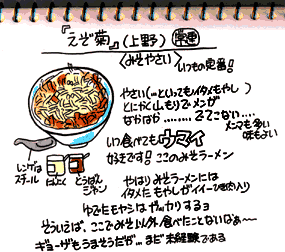 『えぞ菊』(上野)
〈みそやさい〉
いつもの定番!
やさい(=といってもイタメもやし)
とにかく山もりでメンが
なかなか・・・・・・でてこない・・・・
メンマも多い
味もよい
いつ食べてもウマイ
好きです! ここのみそラーメン
レンゲは
スチール
にんにく
とうばん
ジャン
やはりみそラーメンには
イタメたモヤシがイイー
ゆでたモヤシはガッカリするョ
そういえば、ここでみそ以外食べたことないなぁ〜
ギョーザもうまそうだが…まだ未経験である